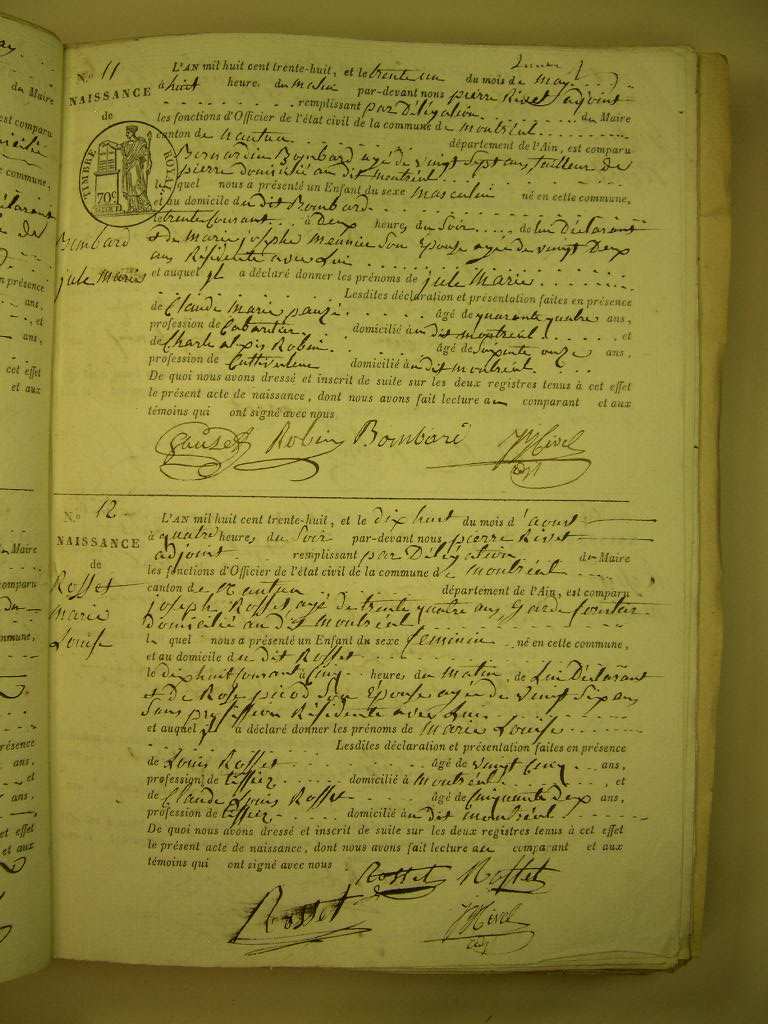 N.º 11
NAISSANCE
de
TIMBRE ROYAL
70c
Bombard
jule Marie
L'AN mil huit cent trente-huit, et le trente un du mois de May
à huit heure du matin par-devant nous pierre Rivet adjoint
remplissant par Délégation du Maire
les fonctions d'Officier de l'état civil de la commune de montréal
canton de nantua département de l'Ain, est comparu
Bernardin Bombard agé de vingt Sept ans, tailleur de
pierre domicilié au dit montréal
lequel nous a présenté un Enfant du sexe masculin né en cette commune,
et au domicile du dit Bombard
le trente Courant à Deux heures du Soir de lui Déclarant
& de Marie josephe Meunier Son Epouse agée de vingt Deux
ans Résidente avec Lui
et auquel il a déclaré donner les prénoms de jule Marie
Lesdites déclaration et présentation faites en présence
de Claude Marie âgé de quarante quatre ans,
profession de Cabaretier domicilié au dit montréal et
de Charle alexis Robin âgé de Soixente onze ans,
profession de Cultivateur domicilié au dit montréal
De quoi nous avons dressé et inscrit de suite sur les deux registres tenus à cet effet
le présent acte de naissance, dont nous avons fait lecture au comparant et aux
témoins qui ont signé avec nous
Robin Bombard PRivet
adj
N.º 12
NAISSANCE
de
Rosset
Marie
Louise
L'AN mil huit cent trente-huit, et le dix huit du mois d'aoust
à quatre heures du Soir par-devant nous pierre Rivet
adjoint remplissant par Délégation du Maire
les fonctions d'Officier de l'état civil de la commune de montréal
canton de Nantua département de l'Ain, est comparu
joseph Rosset, agé de trente quatre ans, Garde forestier
Domicilié au dit montréal
le quel nous a présenté un Enfant du sexe feminin né en cette commune,
et au domicile du dit Rosset
le dix huit Courant à Cinq heures du matin, de Lui Déclarant
& de Rose picod Son Epouse agée de vingt Six ans
Sans profession Résidente avec Lui
et auquel il a déclaré donner les prénoms de Marie Louise
Lesdites déclaration et présentation faites en présence
de Louis Rosset âgé de vingt Cinq ans,
profession de tissier domicilié à montréal et
de Claude Louis Rosset âgé de Cinquante Deux ans,
profession de tissier domicilié au dit montréal
De quoi nous avons dressé et inscrit de suite sur les deux registres tenus à cet effet
le présent acte de naissance, dont nous avons fait lecture au comparant et aux
témoins qui ont signé avec nous
Rosset Rosset
Rosset PRivet
adj